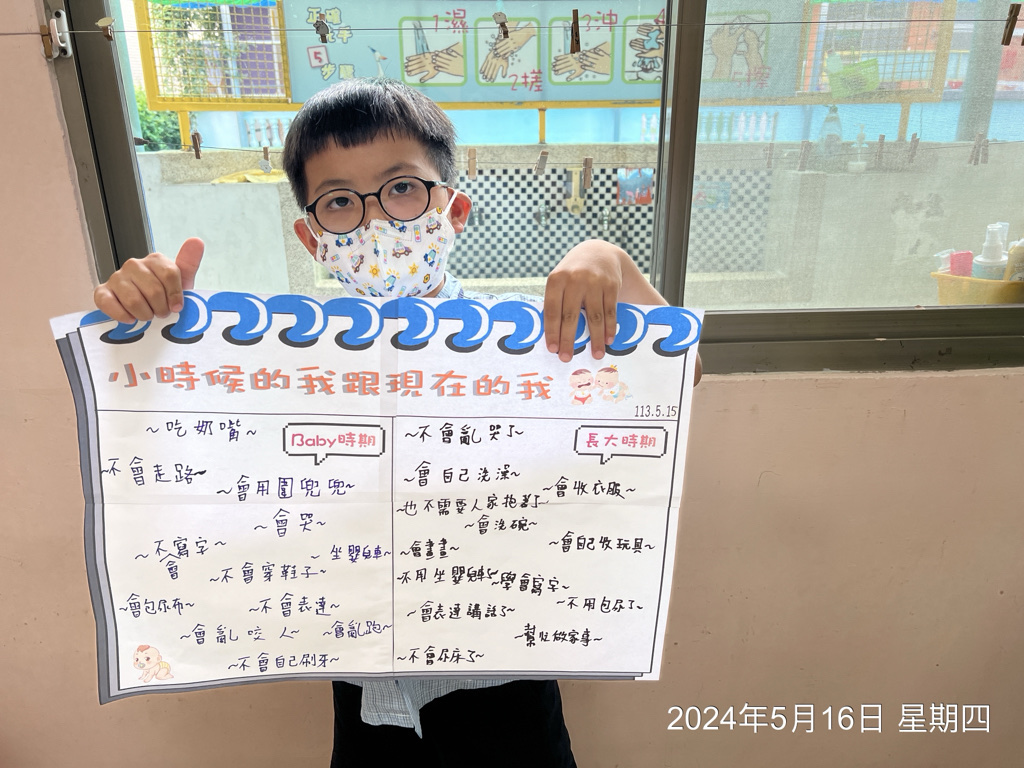 正確洗手
5
步驟
1濕
2搓
3沖
5擦
小時候的我跟現在的我
113.5.15
Baby時期
~吃奶嘴~
不會走路~
~會用圍兜兜~
~會哭~
~不會寫字~
~坐嬰兒車~
~不會穿鞋子~
~會包尿布~
~不會表達~
~會亂咬人~
~會亂跑~
~不會自己刷牙~
長大時期
~不會亂哭了~
~會自己洗澡~
~會收衣服~
~也不需要人家抱著了~
~會洗碗~
~會畫畫~
~會自己收玩具~
~不用坐嬰兒車了~
~學會寫字~
~不用包尿了~
~會表達講話了~
~幫忙做家事~
~不會尿床了~
2024年5月16日 星期四